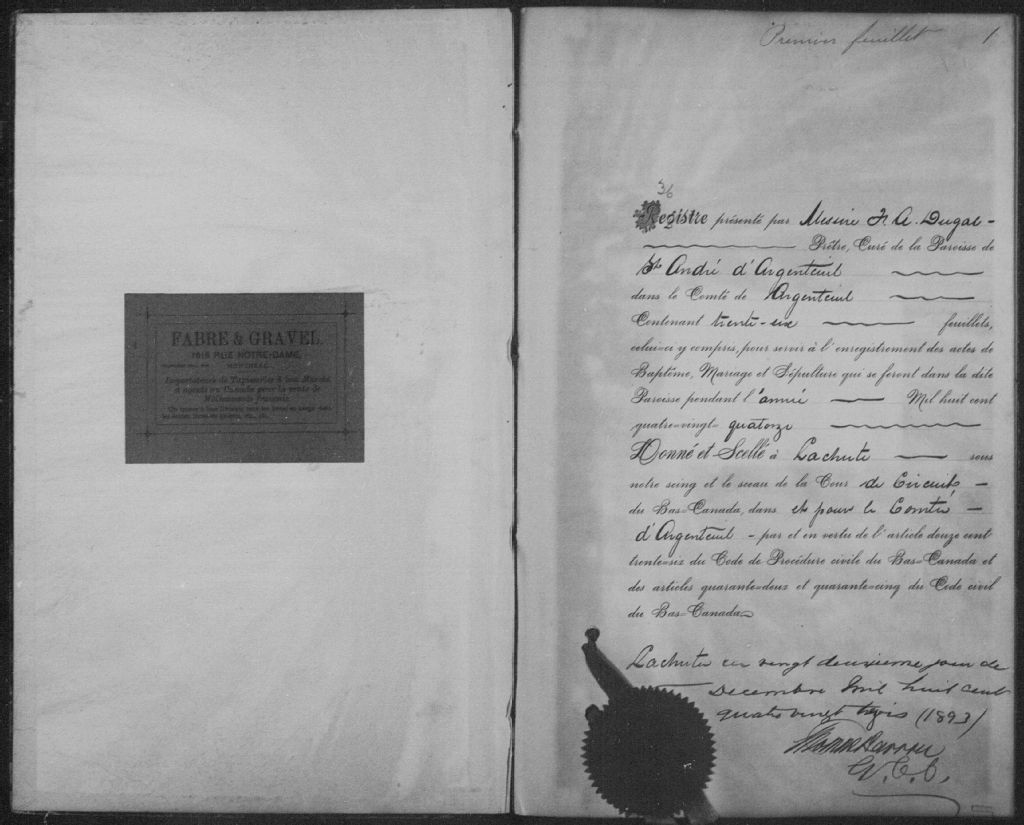 FABRE & GRAVEL
1615 RUE NOTRE-DAME,
MONTREAL
Importateurs de Tapisseries à bon Marché
et agents en Canada pour la vente de
l'Harmonie française.
Premier feuillet 1
36
Registre présenté par Messire F. A. Dugal -
Prêtre, Curé de la Paroisse de
St André d'Argenteuil
dans le Comté de Argenteuil
Contenant trente-six feuillets,
celui-ci y compris, pour servir à l'enregistrement des actes de
Baptême, Mariage et Sépulture qui se feront dans la dite
Paroisse pendant l'année Mil huit cent
quatre-vingt- quatorze
Donné et Scellé à Lachute sous
notre seing et le sceau de la Cour de Circuit, -
du Bas-Canada, dans et pour le Comté -
d'Argenteuil - par et en vertu de l'article douze cent
trente-six du Code de Procédure civile du Bas-Canada et
des articles quarante-deux et quarante-cinq du Code civil
du Bas-Canada
Lachute ce vingt deuxieme jour de
Decembre Mil huit cent
quatre vingt trois (1893)
Barron
G. C. C.